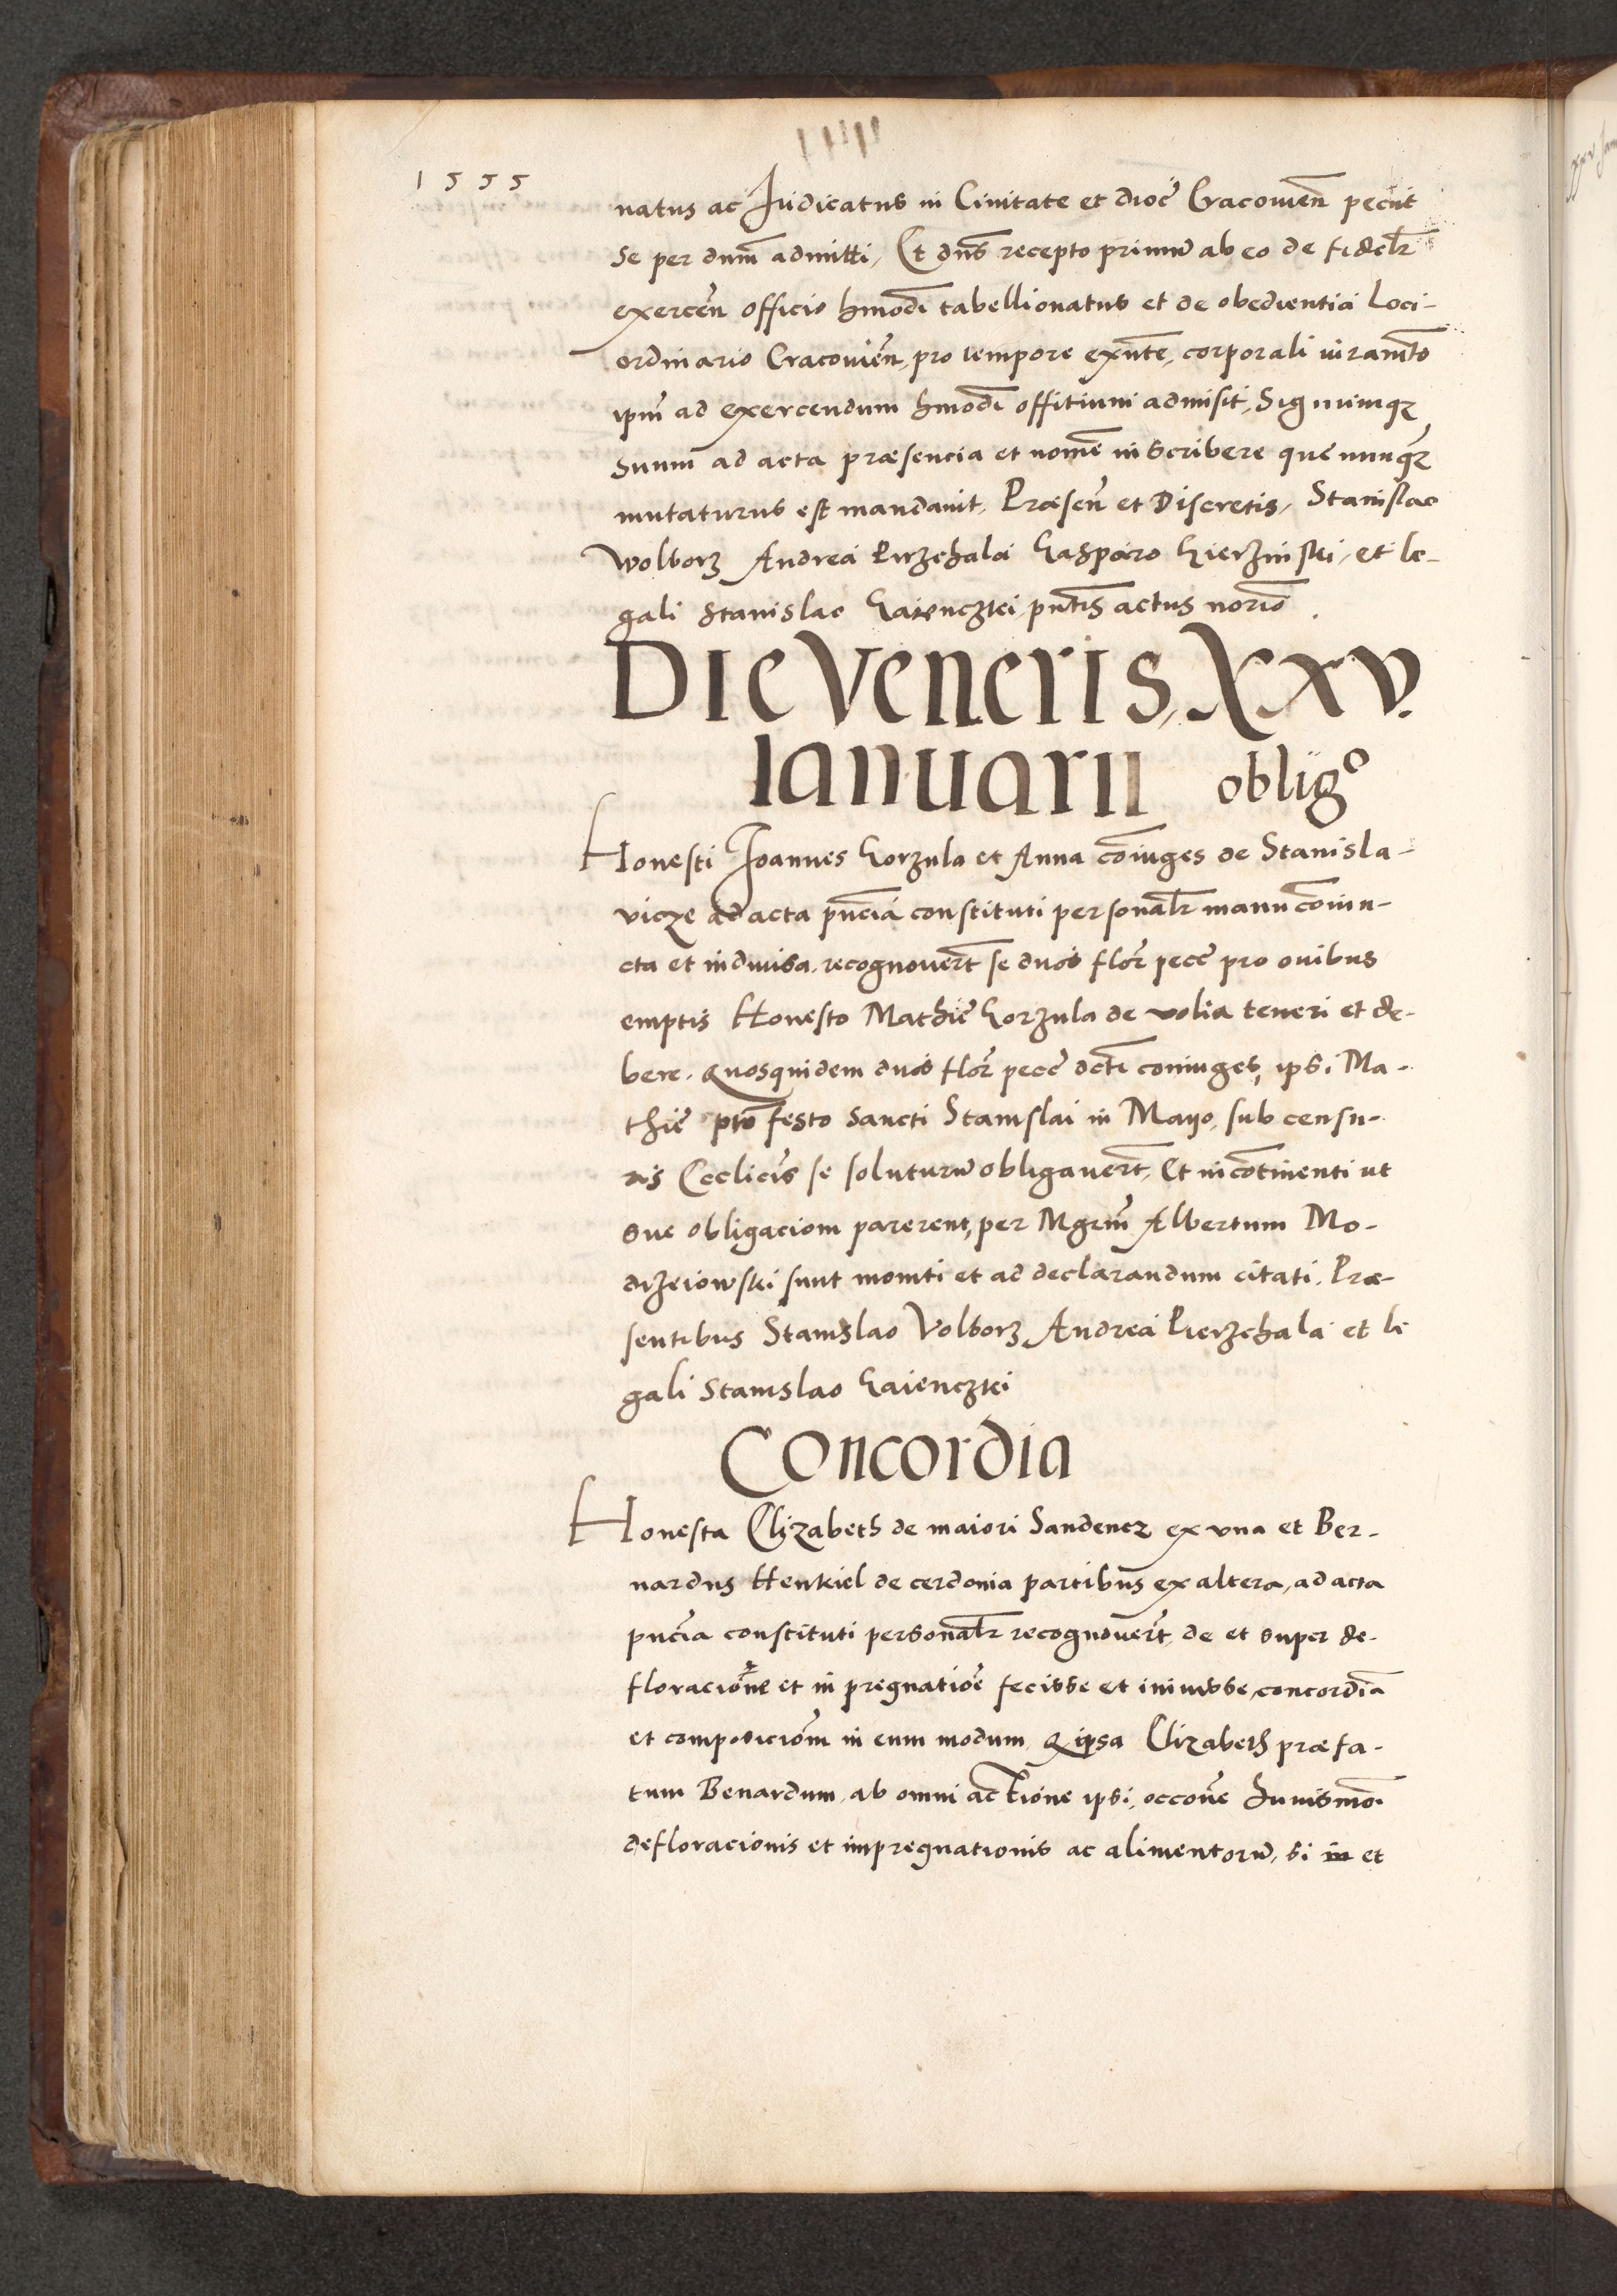 1555
natus ac Iudicatus in Civitate et dioc̄ Cracovien̄ peciit
se per dnum̄ admitti, Et dns̄ recepto primū ab eo de fidelr̄
exercen̄ officio hmodī tabellionatus et de obedientia Loci-
ordinario Cracovien̄, pro tempore exnte̅, corporali iuramt̅o
ipm̄ ad exercendum hmodī offitium admisit, Signumqȝ
suum ad acta præsencia et nomē inscribere que nunqȝ
mutaturus est mandavit, Præsen̄ et Discretis, Stanislao
Wolborz Andrea Pirzchala Casparo Kierzinski, et le-
gali Stanislao Kaienczki pn̄tis actus norio̅.
Die Veneris, XXV.
Ianuarii obligo
Honesti Ioannes Korzula et Anna cōiuges de Stanisla-
vicze ad acta pn̄cia constituti personalr̄ manu cōiun-
cta et indivisa, recognovert̄ se duos flor̄ pecc̄ pro ovibus
emptis Honesto Mathie Korzula de volia teneri et de-
bere. Quosquidem duos flor̄ pecc̄ dctī coniuges, ipsi Ma-
thie pro̅ festo Sancti Stanislai in Mayo, sub censu-
ris Ecclicis̄ se soluturū obligavert̄, Et in cōtinenti ut
sue obligaciom̄ parerent, per Mgrm̄ Albertum Mo-
drzeiowski sunt moniti et ad declarandum citati. Præ-
sentibus Stanislao Volborz Andrea Pierzchala et le
gali Stanislao Kaienczki
Concordia
Honesta Elizabeth de maiori Sandencz ex una et Ber-
nardus Henkiel de cerdonia partibus ex altera, ad acta
pn̄cia constituti personalr̄ recognovert̄, de et super de-
floracione et in pregnatioē fecisse et iniuisse, concordia̅
et composiciom̄ in eum modum, Q ipsa Elizabeth præfa-
tum Benardum, ab omni actione ipsi, occone̅ huiusmōi
defloracionis et impregnationis ac alimentorū, si in et